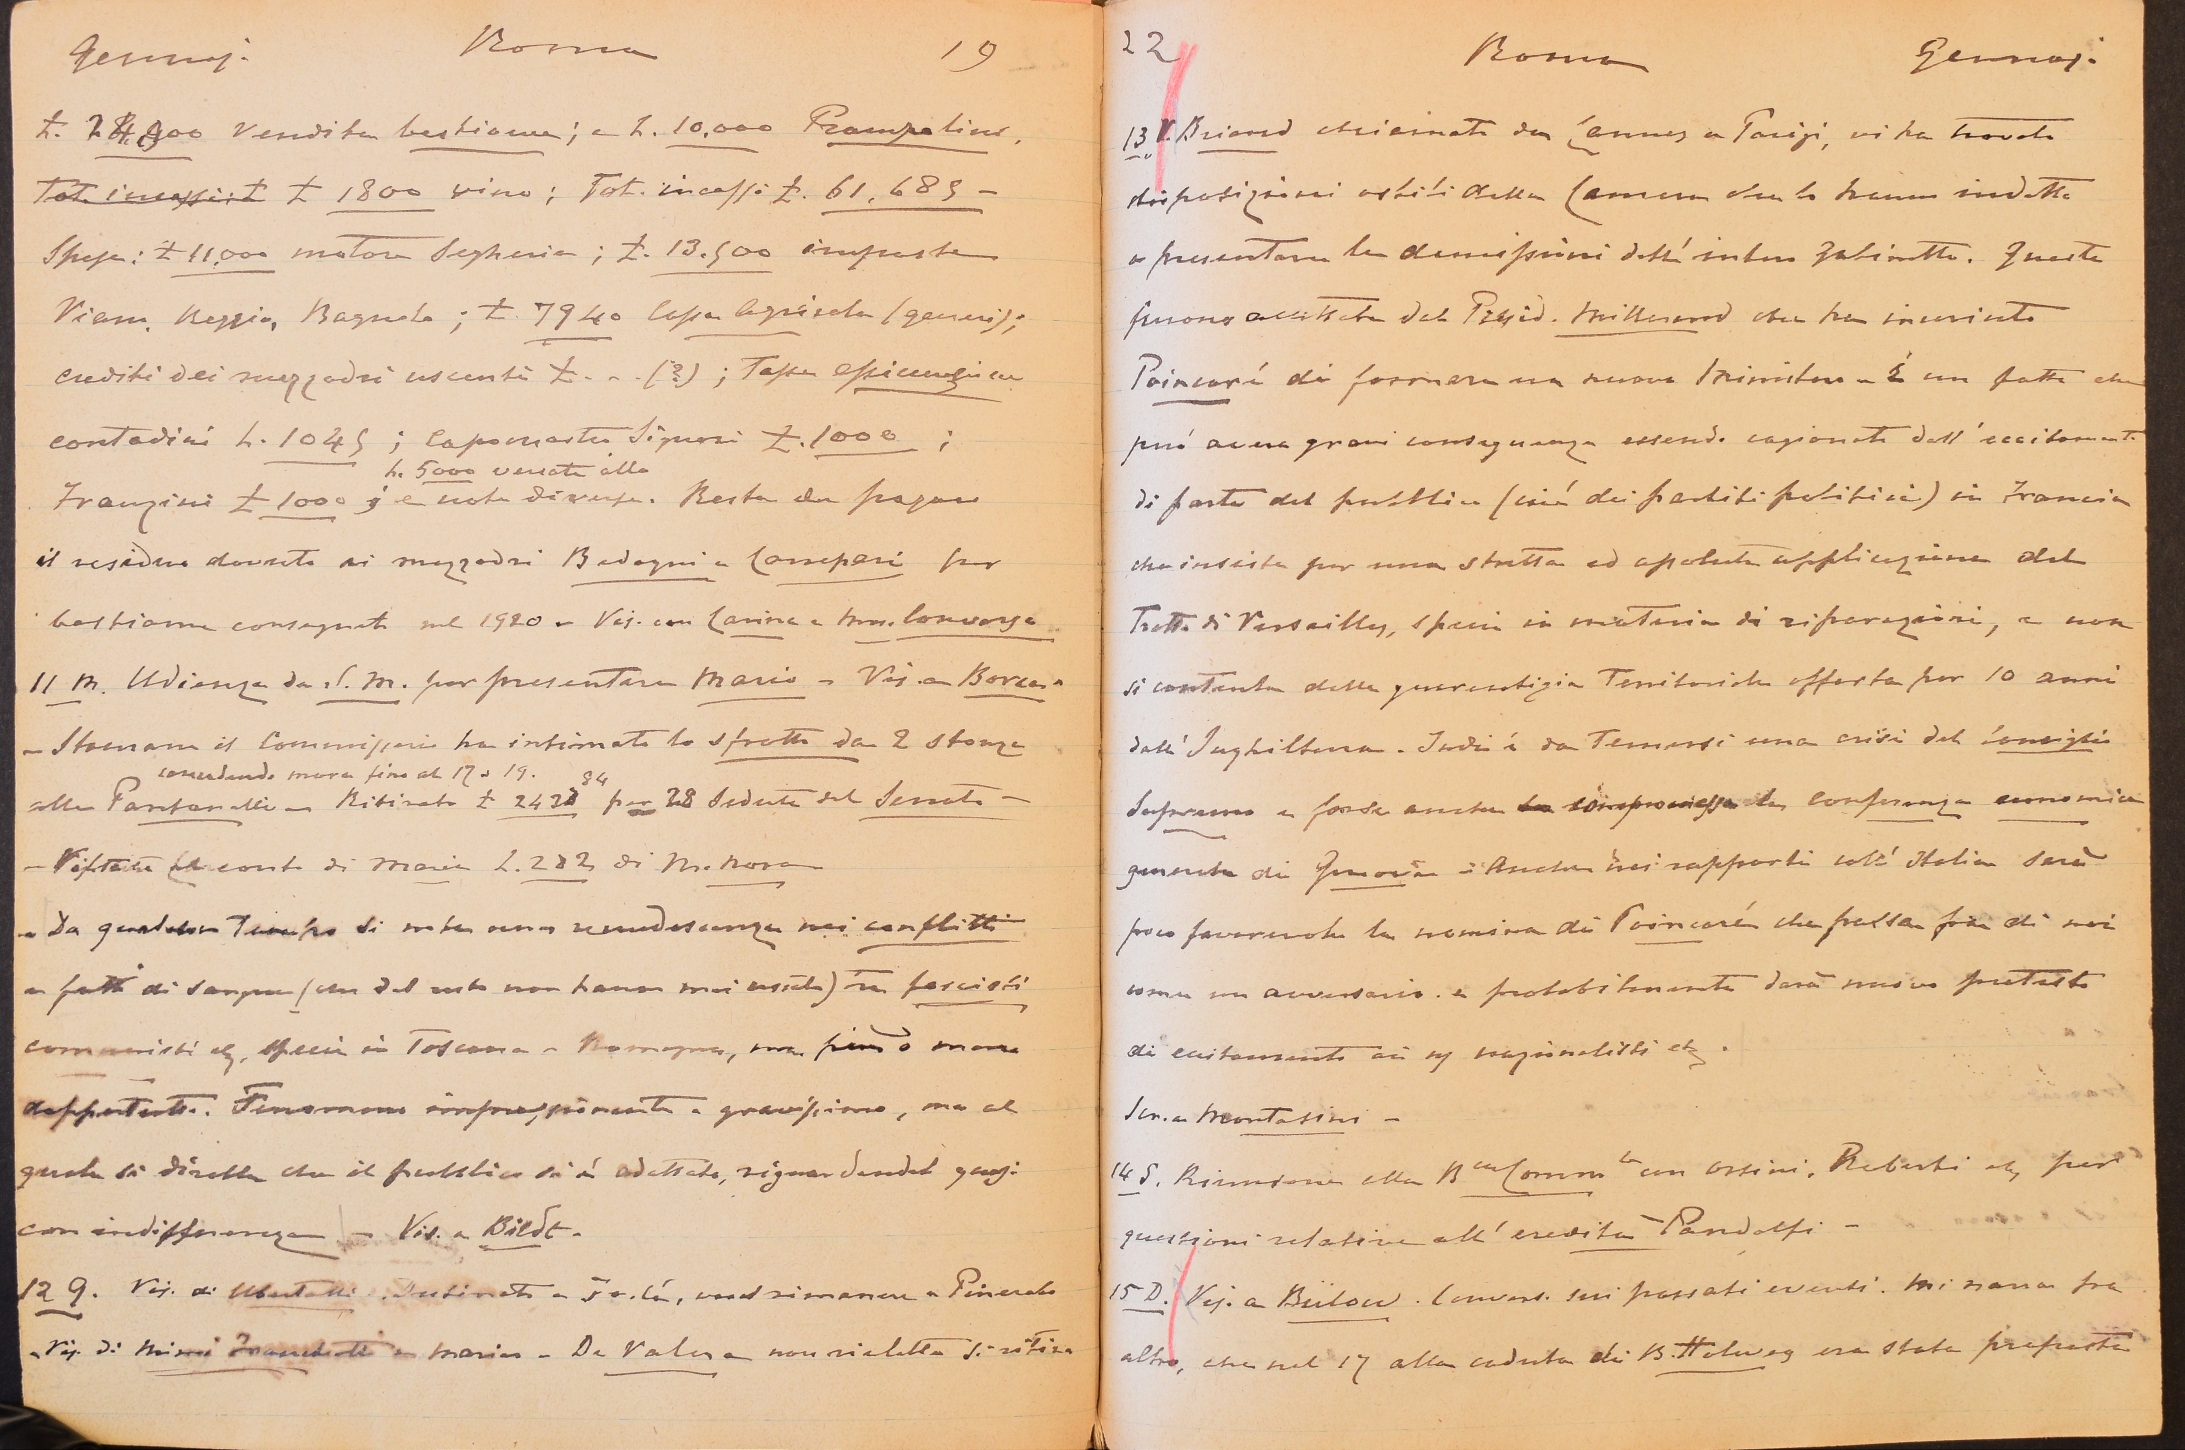 Gennaj. Roma 19
£. 24.000 vendita bestiame; e L. 10.000 Prampolini.
Tot. incassi: £ £ 1800 vino; Tot. incassi £. 61.685 –
Spese: £ 11.000 motore segheria; £. 13.500 imposte
Viano, Reggio, Bagnolo; £ 7940 Cassa Agricola (generi);
crediti dei mezzadri uscenti £. . . (?); Tassa
contadini L. 1045; Capomastro Signori £. 1000;
L. 5000 versate alla
Franzini £ 1000; e note diverse. Resta da pagare
il residuo dovuto ai mezzadri Bedogni e per
bestiame consegnato nel 1920 – Vis. con Carina e
11 M. Udienza da S. M. per presentare Mario – Vis. a
– Stamane il Commissario ha intimato lo sfratto da 2 stanze
concedendo mora fino al 17 o 19.
alla Pantanelli – Ritirato £ 2428 84 per 28 sedute del Senato –
– conto di Maria L. 282 di
– Da qualche tempo si nota una recrudescenza nei conflitti
e fatti di sangue (che del resto non hanno mai ) tra fascisti
comunisti etc, specie in Toscana e Romagna, ma più o meno
dappertutto. Fenomeno impressionante e gravissimo, ma al
quale si direbbe che il pubblico si è adattato, riguardandol quasi
con indifferenza – Vis. a Bildt –
12 G. Vis. di Ubertalli. Destinato a , vuol rimanere a Pinerolo
– Vis. di Mimì Franchetti e Mario – De Valera non rieletto si ritira
22 Roma Gennaj.
13 V. Briand chiamato da Cannes a Parigi, vi ha trovato
disposizioni ostili della Camera che lo hanno indotto
a presentare le demissioni dell' intero gabinetto. Queste
furono accettate dal Presid. Millerand che ha incaricato
Poincaré di formare un nuovo Ministero – È un fatto che
può avere gravi conseguenze essendo cagionato dall' eccitamento
di parte del pubblico (cioè dei partiti politici) in Francia
che insiste per una stretta ed assoluta applicazione del
Tratt. di Versailles, specie in materia di riparazioni, e non
si contenta della guarentigia territoriale offerta per 10 anni
dall' Inghilterra. Indi è da temersi una crisi del Consiglio
Supremo e forse anche la compromessa la conferenza economica
generale di Genova – Anche nei rapporti coll' Italia sarà
poco favorevole la nomina di Poincaré che passa fra di noi
come un avversario. e probabilmente darà nuovo pretesto
di eccitamento ai ns nazionalisti etc.
Ser. a Montasini –
14 S. Riunione alla Bca Commle con Orsini, Roberti etc, per
questioni relative all' eredità Pandolfi –
15 D. Vis. a Bülow. Convers. sui passati eventi. Mi narra fra
altro, che nel 17 alla caduta di B. Hollweg era stata proposta